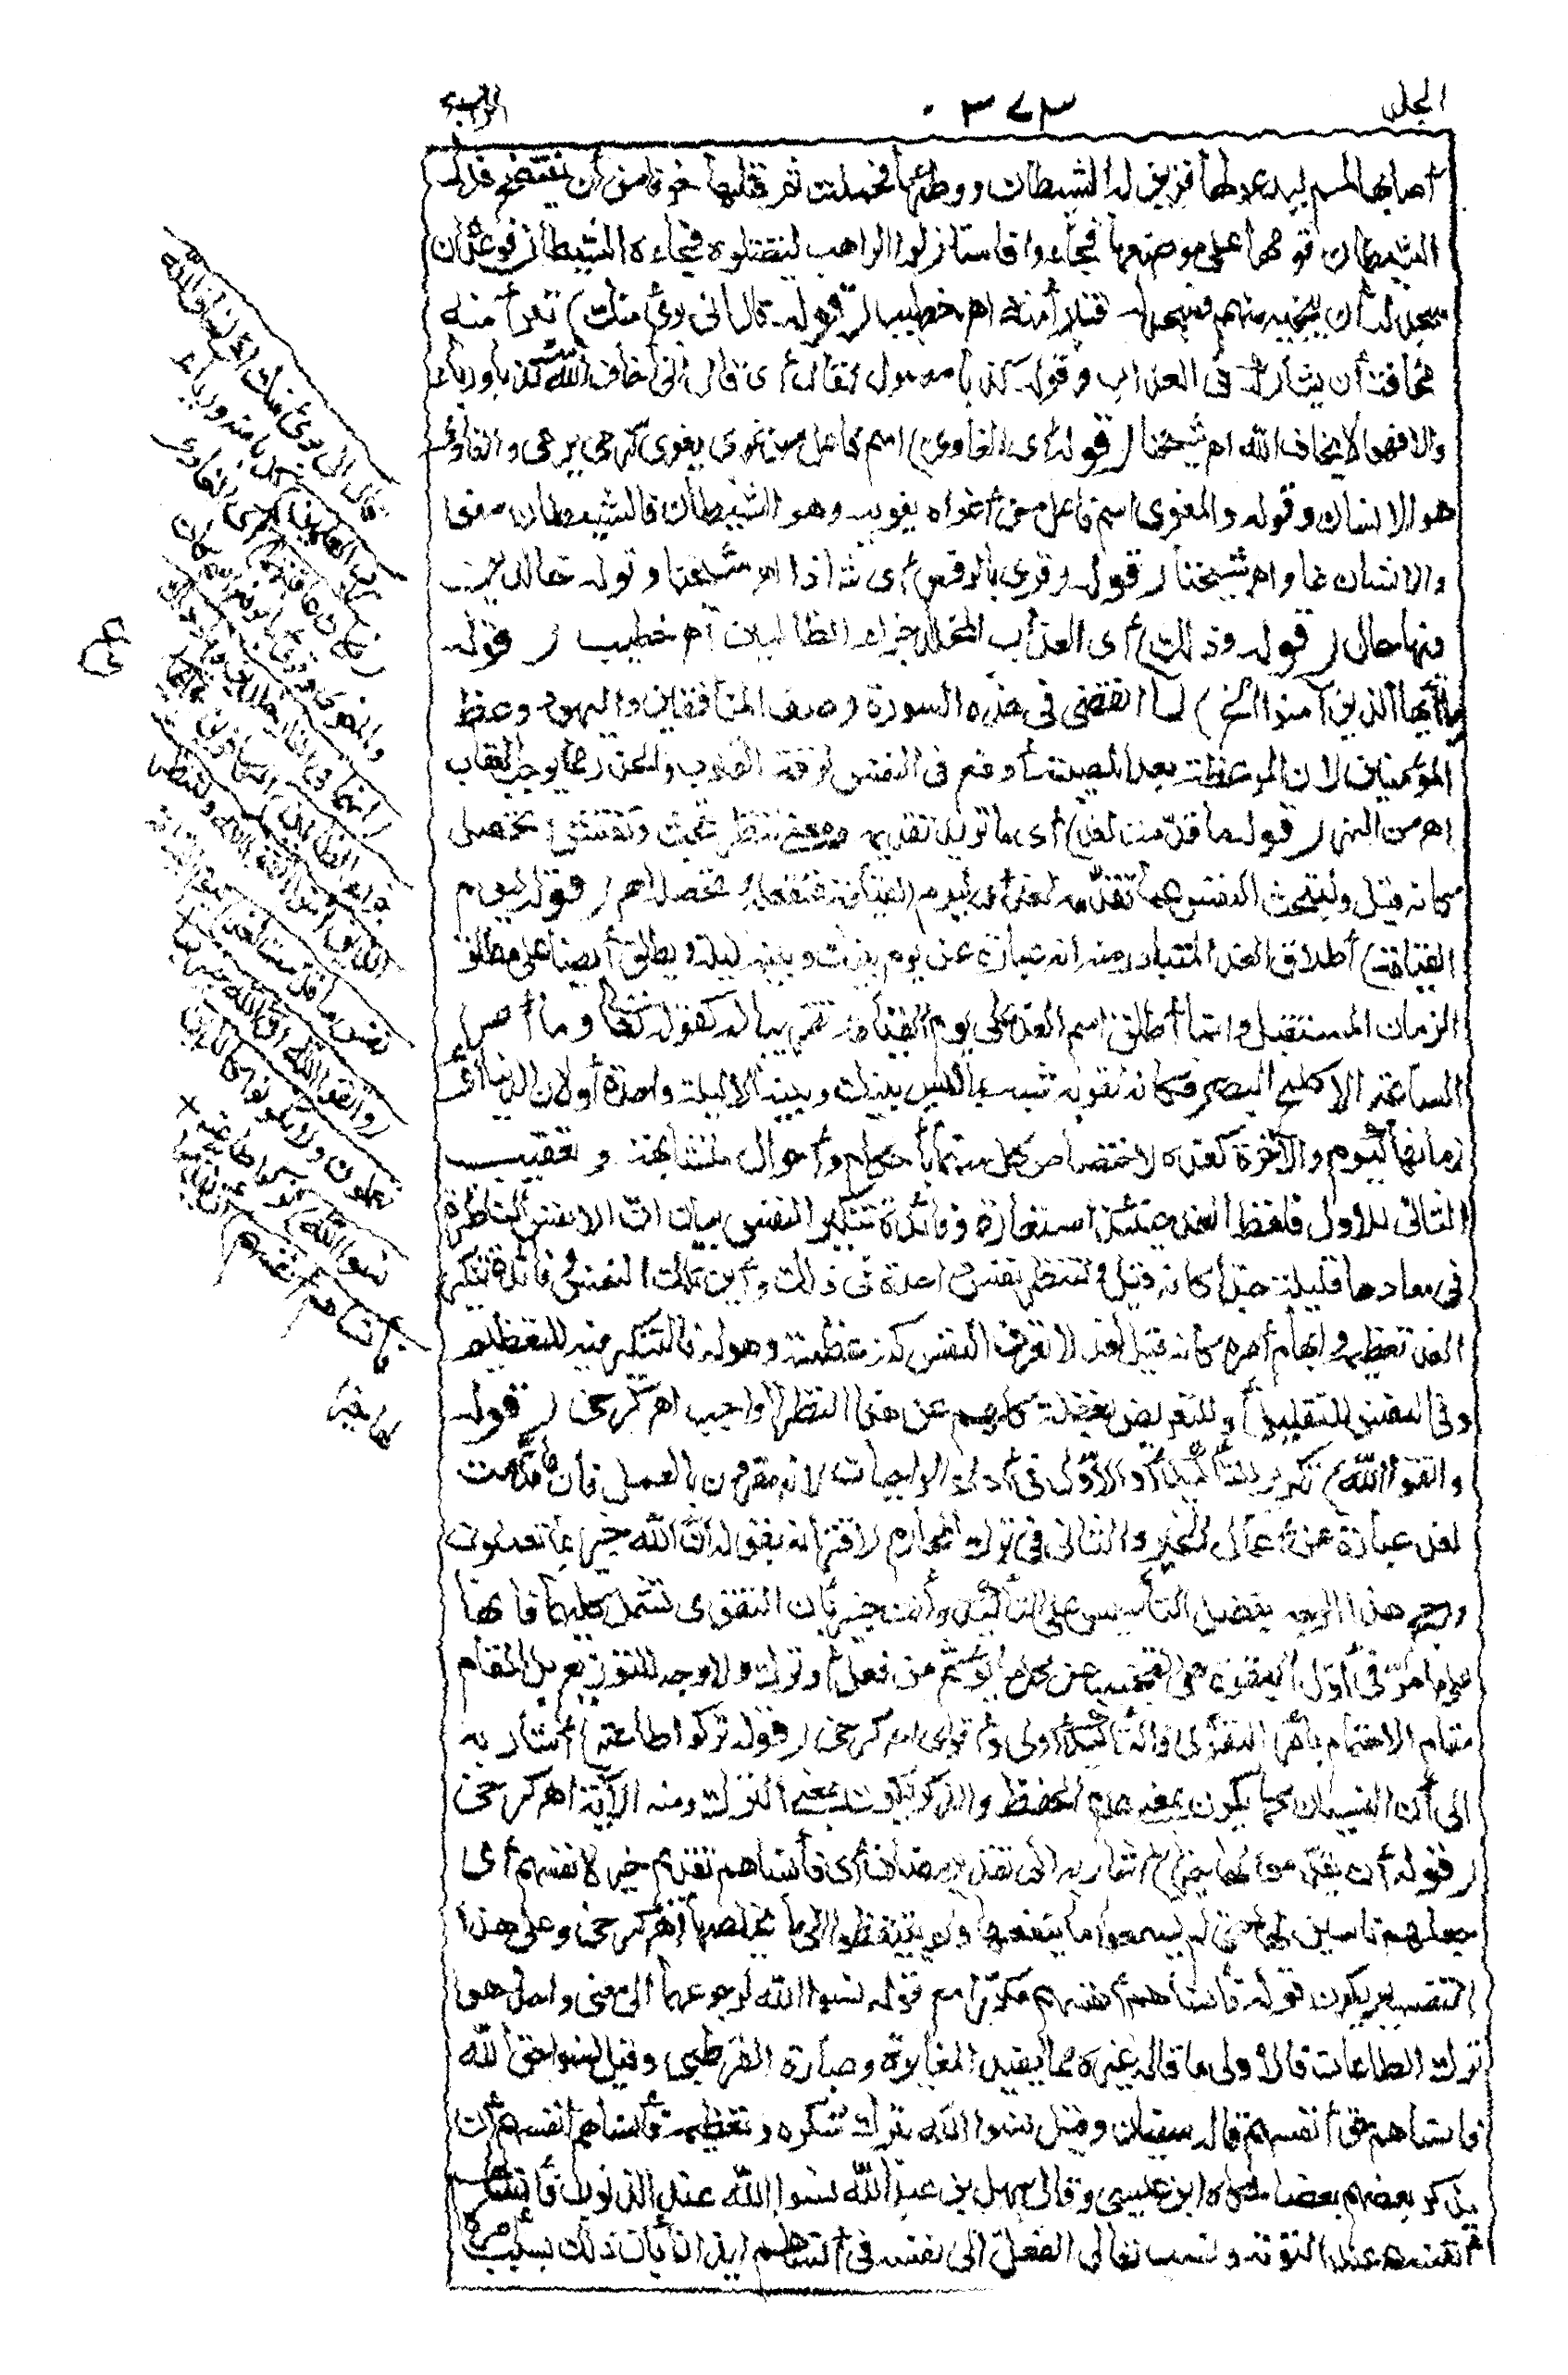 المجلد
٣٧٣
الرابع
أصابها المس ليدعو لها فزين له الشيطان ووطئها فحملت ثم قتلها خوفا من أن يفتضح فدل
الشيطان قومها على موضعها فجاءوا فاستنزلوا الراهب ليقتلوه فجاءه الشيطان فوعده ان
سجد له أن ينجيه منهم فسجد له فتبرأ منه اهـ خطيب (قوله قال انى برئ منك) تبرأ منه
مخافة أن يشاركه فى العذاب وقوله كذبا معمول لقال أى قال انى أخاف الله كذبا ورياء
والا فهو لا يخاف الله اهـ شيخنا (قوله أى الغاوى) اسم فاعل من غوى يغوى كرمى يرمى والغاوى
هو الانسان وقوله والمغوى اسم فاعل من أغواه يغويه وهو الشيطان فالشيطان مغو
والانسان غاو اهـ شيخنا (قوله وقرئ بالرفع) أى شاذا اهـ شيخنا وقوله خالدين
فيها حال (قوله وذلك) أى العذاب المخلد جزاء الظالمين اهـ خطيب (قوله
يا أيها الذين آمنوا الخ) لما انقضى فى هذه السورة وصف المنافقين واليهود وعظ
المؤمنين لان الموعظة بعد المصيبة أوقع فى النفس لرقة القلوب والحذر مما يوجب العقاب
اهـ من النهر (قوله ما قدمت لغد) أى ما تريد تقديمه ومعنى تنتظر تبحث وتفتش تحصل
كانه قيل ولتبحث النفس عما تقدمه لغد أى ليوم القيامة فتفعله تحصله اهـ (قوله ليوم
القيامة) أطلاق الغد المتبادر منه انه عبارة عن يوم بينك وبينه ليلة ويطلق أيضا على مطلق
الزمان المستقبل وانما أطلق اسم الغد على يوم القيامة تقريبا له كقوله تعالى وما أمر
الساعة الا كلمح البصر فكانه لقربه شبه بما ليس بينك وبينه الا ليلة واحدة أو لان الدنيا أى
زمانها كيوم والآخرة كغده لاختصاص كل منهما بأحكام وأحوال متشابهة وتعقيب
الثانى للاول فلفظ الغد حينئذ استعارة وفائدة تنكير النفس بيان ان الانفس الناظرة
فى معادها قليلة جدا كانه قيل ولتنظر نفس واحدة فى ذلك وأين تلك النفس وفائدة تنكير
الغد تعظيمه وابهام أمره كانه قيل لغد لا تعرف النفس كنه عظمته وهوله فالتنكير فيه للتعظيم
وفى النفس للتقليل وللتعريض بغفلة كلهم عن هذا النظر الواجب اهـ كرخى (قوله
واتقوا الله) تكرير للتأكيد أو الاول فى أداء الواجبات لانه مقرون بالعمل فان ما قدمت
لغد عبارة عن أعمال الخير والثانى فى ترك المحارم لاقترانه بقوله ان الله خبير بما تعملون
ورجح هذا الوجه بفضل التأسيس على التأكيد وأنت خبير بان التقوى تشمل كليهما فانها
على ما مر فى أول البقرة هى التجنب عن كل ما يؤثم من فعل أو ترك ولا وجه للتوزيع بل المقام
مقام الاهتمام بأمر التقوى فالتأكيد أولى وأقوى اهـ كرخى (قوله تركوا طاعته) أشار به
الى أن النسيان كما يكون بمعنى عدم الحفظ والذكر يكون بمعنى الترك ومنه الآية اهـ كرخى
(قوله أن يقدموا لها خيرا) أشار به الى تقدير مضاف أى فأنساهم تقديم خير لانفسهم أى
جعلهم ناسين لها حتى لم يسمعوا ما ينفعها ولم يتيقظوا الى ما يخلصها اهـ كرخى وعلى هذا
التفسير يكون قوله فأنساهم أنفسهم مكررا مع قوله نسوا الله لرجوعهما الى معنى واحد هو
ترك الطاعات فالاولى ما قاله غيره مما يفيد المغايرة وعبارة القرطبى وقيل نسوا حق الله
فانساهم حق أنفسهم قاله سفيان وقيل نسوا الله بترك شكره وتعظيمه فأنساهم أنفسهم أن
يذكر بعضهم بعضا حكاه ابن عيسى وقال سهل بن عبد الله نسوا الله عند الذنوب فأنساهم
أنفسهم عند التوبة ونسب تعالى الفعل الى نفسه فى أنساهم ايذانا بأن ذلك بسبب أمره
قال انى برئ منك انى أخاف الله
رب العالمين) كذبا منه ورياء
(فكان عاقبتهما) أى الغاوى
والمغوى وقرئ بالرفع اسم كان
(أنهما فى النار خالدين فيها وذلك
جزاء الظالمين) الكافرين (يا أيها
الذين آمنوا اتقوا الله ولتنظر
نفس ما قدمت لغد) ليوم القيامة
(واتقوا الله ان الله خبير بما
تعملون ولا تكونوا كالذين
نسوا الله) تركوا طاعته
(فأنساهم أنفسهم) أن يقدموا
لها خيرا